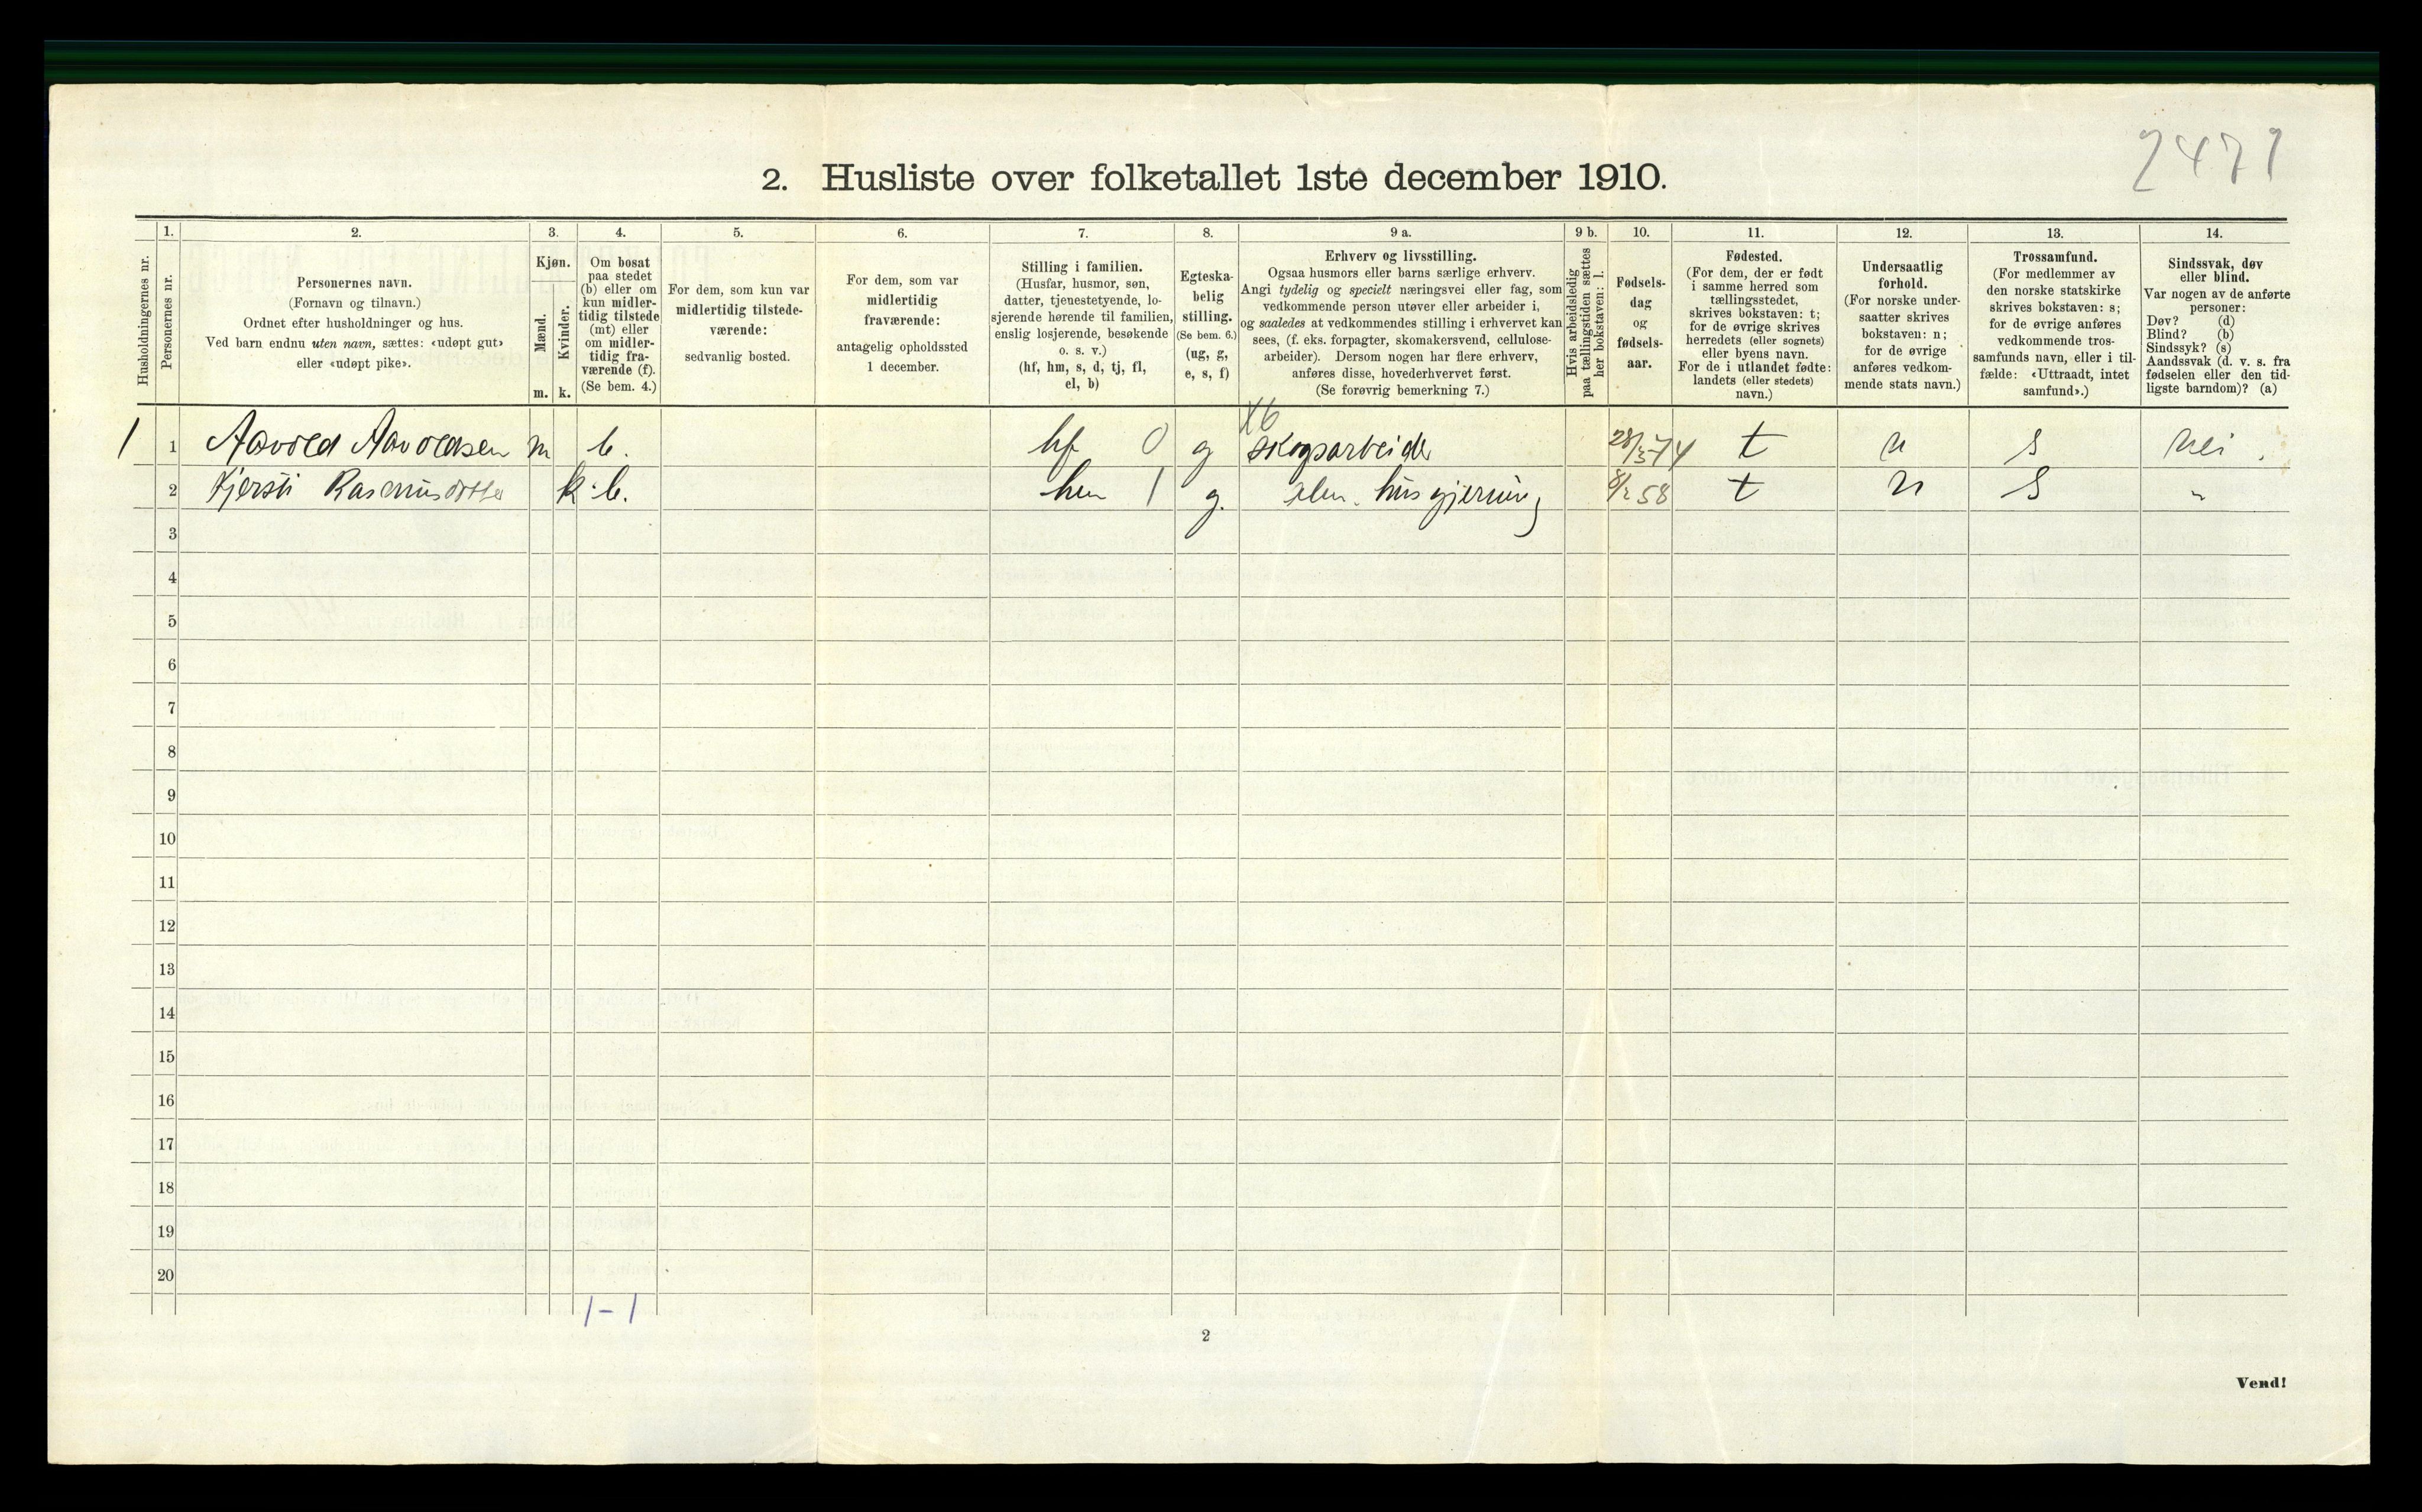 2471
2. Husliste over folketallet 1ste december 1910.
Husholdningernes nr.
1.
Personernes nr.
2.
Personernes navn.
(Fornavn og tilnavn.)
Ordnet efter husholdninger og hus.
Ved barn endnu uten navn, sættes: «udøpt gut»
eller «udøpt pike».
3.
Kjøn.
Mænd.
Kvinder.
m. k.
4.
Om bosat
paa stedet
(b) eller om
kun midler-
tidig tilstede
(mt) eller
om midler-
tidig fra-
værende (f).
(Se bem. 4.)
5.
For dem, som kun var
midlertidig tilstede-
værende:
sedvanlig bosted.
6.
For dem, som var
midlertidig
fraværende:
antagelig opholdssted
1 december.
7.
Stilling i familien.
(Husfar, husmor, søn,
datter, tjenestetyende, lo-
sjerende hørende til familien,
enslig losjerende, besøkende
o. s. v.)
(hf, hm, s, d, tj, fl,
el, b)
8.
Egteska-
belig
stilling.
(Se bem. 6.)
(ug, g,
e, s, f)
9 a.
Erhverv og livsstilling.
Ogsaa husmors eller barns særlige erhverv.
Angi tydelig og specielt næringsvei eller fag, som
vedkommende person utøver eller arbeider i,
og saaledes at vedkommendes stilling i erhvervet kan
sees, (f. eks. forpagter, skomakersvend, cellulose-
arbeider). Dersom nogen har flere erhverv,
anføres disse, hovederhvervet først.
(Se forøvrig bemerkning 7.)
9 b.
Hvis arbeidsledig
paa tællingstiden sættes
her bokstaven: l.
10.
Fødsels-
dag
og
fødsels-
aar.
11.
Fødested.
(For dem, der er født
i samme herred som
tællingsstedet,
skrives bokstaven: t;
for de øvrige skrives
herredets (eller sognets)
eller byens navn.
For de i utlandet fødte:
landets (eller stedets)
navn.)
12.
Undersaatlig
forhold.
(For norske under-
saatter skrives
bokstaven: n;
for de øvrige
anføres vedkom-
mende stats navn.)
13.
Trossamfund.
(For medlemmer av
den norske statskirke
skrives bokstaven: s;
for de øvrige anføres
vedkommende tros-
samfunds navn, eller i til-
fælde: «Uttraadt, intet
samfund».)
14.
Sindssvak, døv
eller blind.
Var nogen av de anførte
personer:
Døv? (d)
Blind? (b)
Sindssyk? (s)
Aandssvak (d. v. s. fra
fødselen eller den tid-
ligste barndom)? (a)
X6
1 1 Aavold Aavoldsen m b. hf 0 g skogsarbeider 28/5 74 t n s nei.
2 Kjersti Rasmusdotter k. b. hm 1 g. alm. husgjerning 8/2 58 t n s "
3
4
5
6
7
8
9
10
11
12
13
14
15
16
17
18
19
20
1-1
2
Vend!